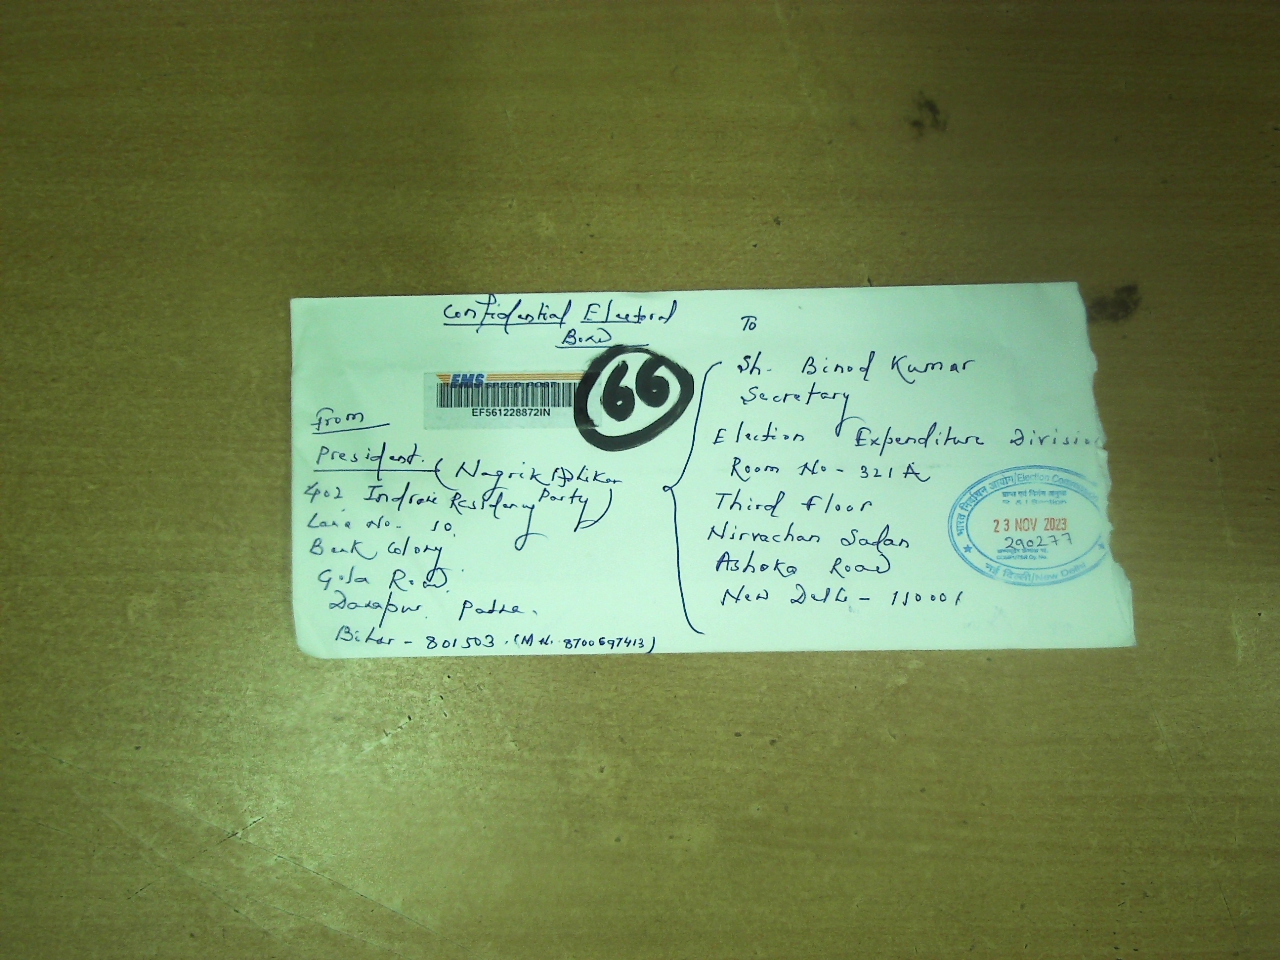 Confidential Electoral
Bond
EMS SPEED POST
EF561228872IN
66
From
President (Nagrik Adhikar
Party)
402 Indraie Residency
Lane No. 10
Bank Colony
Gola Road
Danapur Patna.
Bihar - 801503. (M N. 8700697413)
To
Sh. Binod Kumar
Secretary
Election Expenditure Division
Room No - 321 A
Third Floor
Nirvachan Sadan
Ashoka Road
New Delhi - 110001
भारत निर्वाचन आयोग/Election Commission
23 NOV 2023
290277
COMPUTER Dy. No.
नई दिल्ली/New Delhi